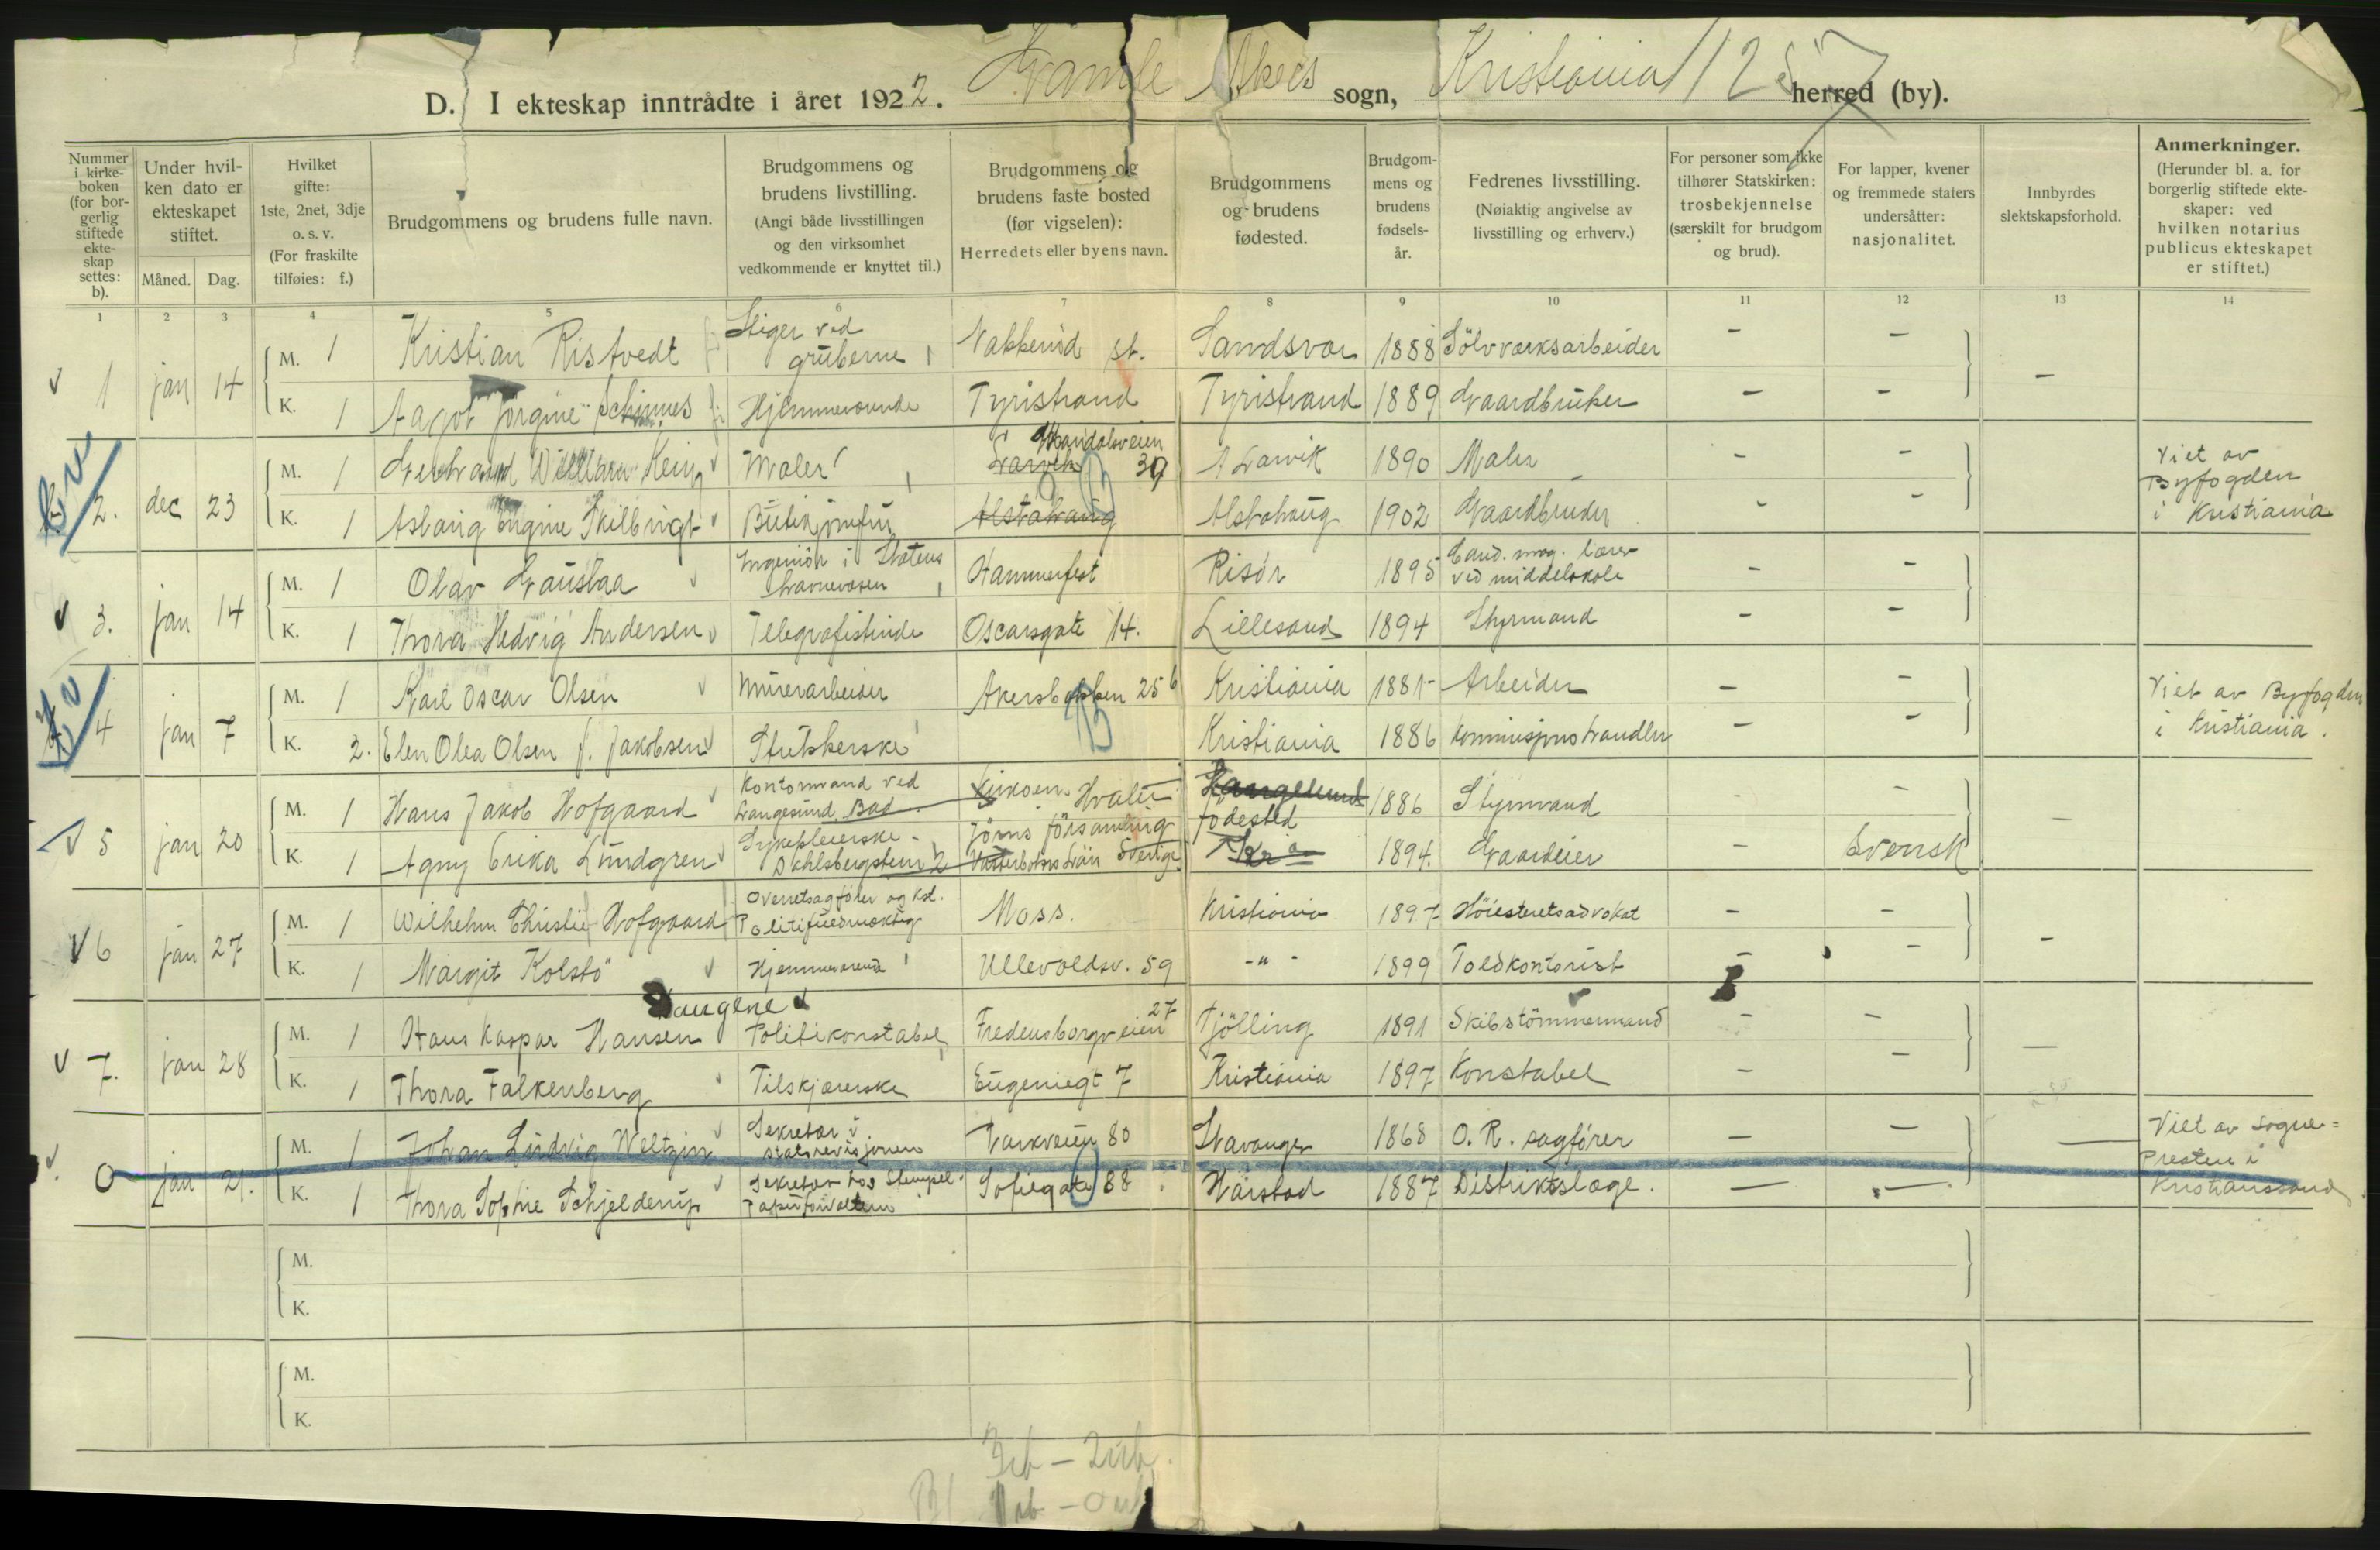 D. I ekteskap inntrådte i året 1922. Gamle Akers sogn, Kristiania 125 herred (by).
Nummer i kirkeboken (for borgerlig stiftede ekteskap settes: b).
Under hvilken dato er ekteskapet stiftet.
Måned. Dag.
Hvilket gifte: 1ste, 2net, 3dje o. s. v. (For fraskilte tilføies: f.)
Brudgommens og brudens fulle navn.
Brudgommens og brudens livstilling. (Angi både livsstillingen og den virksomhet vedkommende er knyttet til.)
Brudgommens og brudens faste bosted (før vigselen): Herredets eller byens navn.
Brudgommens og brudens fødested.
Brudgommens og brudens fødselsår.
Fedrenes livsstilling. (Nøiaktig angivelse av livsstilling og erhverv.)
For personer som ikke tilhører Statskirken: trosbekjennelse (særskilt for brudgom og brud).
For lapper, kvener og fremmede staters undersåtter: nasjonalitet.
Innbyrdes slektskapsforhold.
Anmerkninger. (Herunder bl. a. for borgerlig stiftede ekteskaper: ved hvilken notarius publicus ekteskapet er stiftet.)
1 2 3 4 5 6 7 8 9 10 11 12 13 14
1 jan 14 M. 1 Kristian Ristvedt Stiger ved gruberne st. Sandsvær 1888 Sölvværksarbeider - - -
K. 1 Aagot Jörgine Hjemmeværende Tyristrand Tyristrand 1889 Gaardbruker - -
2. dec 23 M. 1 Maler Larvik 39 Larvik 1890 Maler - - Viet av Byfogden i Kristiania
K. 1 Aslaug Skilbrigt Butikjomfru Alstahaug Alstahaug 1902 Gaardbruker - -
3. jan 14 M. 1 Olav Gaustaa Ingeniör i Statens havnevæsen Hammerfest Risör 1895 Cand. mag. lærer ved middelskole - -
K. 1 Thora Hedvig Andersen Telegrafistinde Oscarsgate 14. Lillesand 1894 Styrmand - -
4 jan 7 M. 1 Karl Oscar Olsen Murerarbeider Akersbakken 25 b Kristiania 1881 Arbeider - - Viet av Byfogden i Kristiania.
K. 2. Elen Olea Olsen f. Jakobsen Kristiania 1886 kommisjonshandler - -
5 jan 20 M. 1 Hans Jakob Hofgaard Kontormand ved Langesund Bad Hvaler Langesund fødested 1886 Styrmand - - -
K. 1 Agny Erika Lundgren Sykepleierske Dahlsbergstien 2 Jörns församling Västerbottens län Sverige Kr a 1894. Gaardeier - Svensk
6 jan 27 M. 1 Wilhelm Christie Hofgaard Overretsagfører og Kst. Politifuldmægtig Moss. Kristiania 1897 Höiesteretsadvokat - - -
K. 1 Margit Kolstö Hjemmeværende Ullevoldsv. 59 - " - 1899 Toldkontorist - -
Haugene
7. jan 28 M. 1 Hans Kaspar Hansen Politikonstabel Fredensborgveien 27 Tjölling 1891 Skibstömmermand - - -
K. 1 Thora Falkenberg Tilskjærerske Eugeniegt 7 Kristiania 1897 Konstabel - -
0 jan 21. M. 1 Johan Ludvig Weltzin Sekretær i statsrevisjonen Parkveien 80 Stavanger 1868 O. R. sagfører - - - Viet av Sogne= Presten i Kristianssand
K. 1 Thora Sophie Schjelderup Sekretær hos Stempel- Papirforvalteren Sofiegate 88 Harstad 1887 Distriktslæge. - -
M.
K.
M.
K.